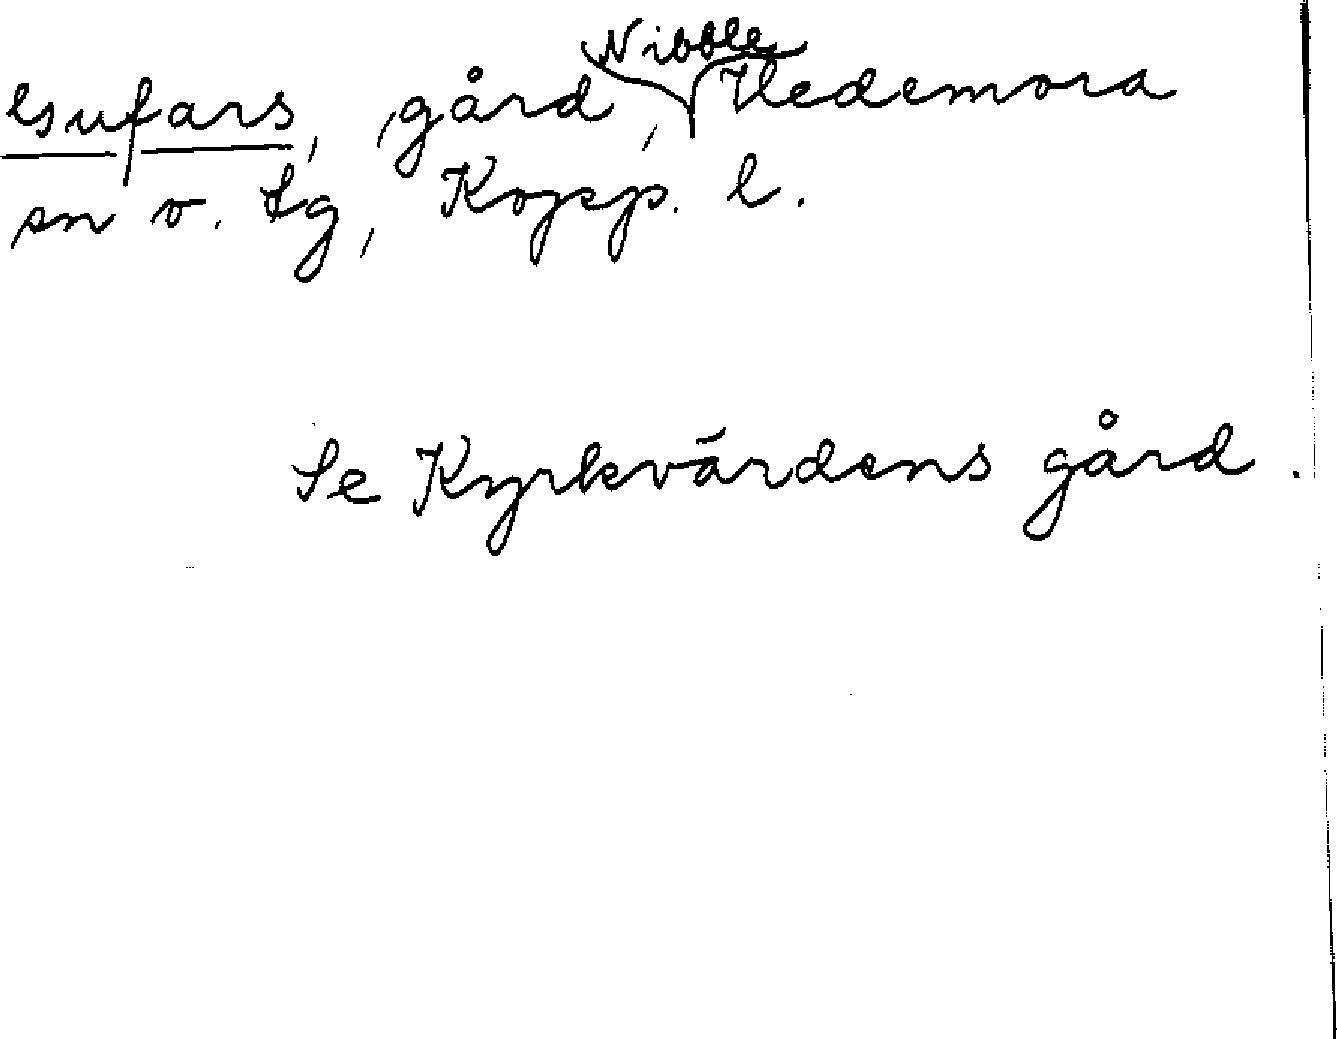 Gufars, gård, Nibble Hedemora
sn v. tg, Kopp. l.
Se Kyrkvärdens gård.